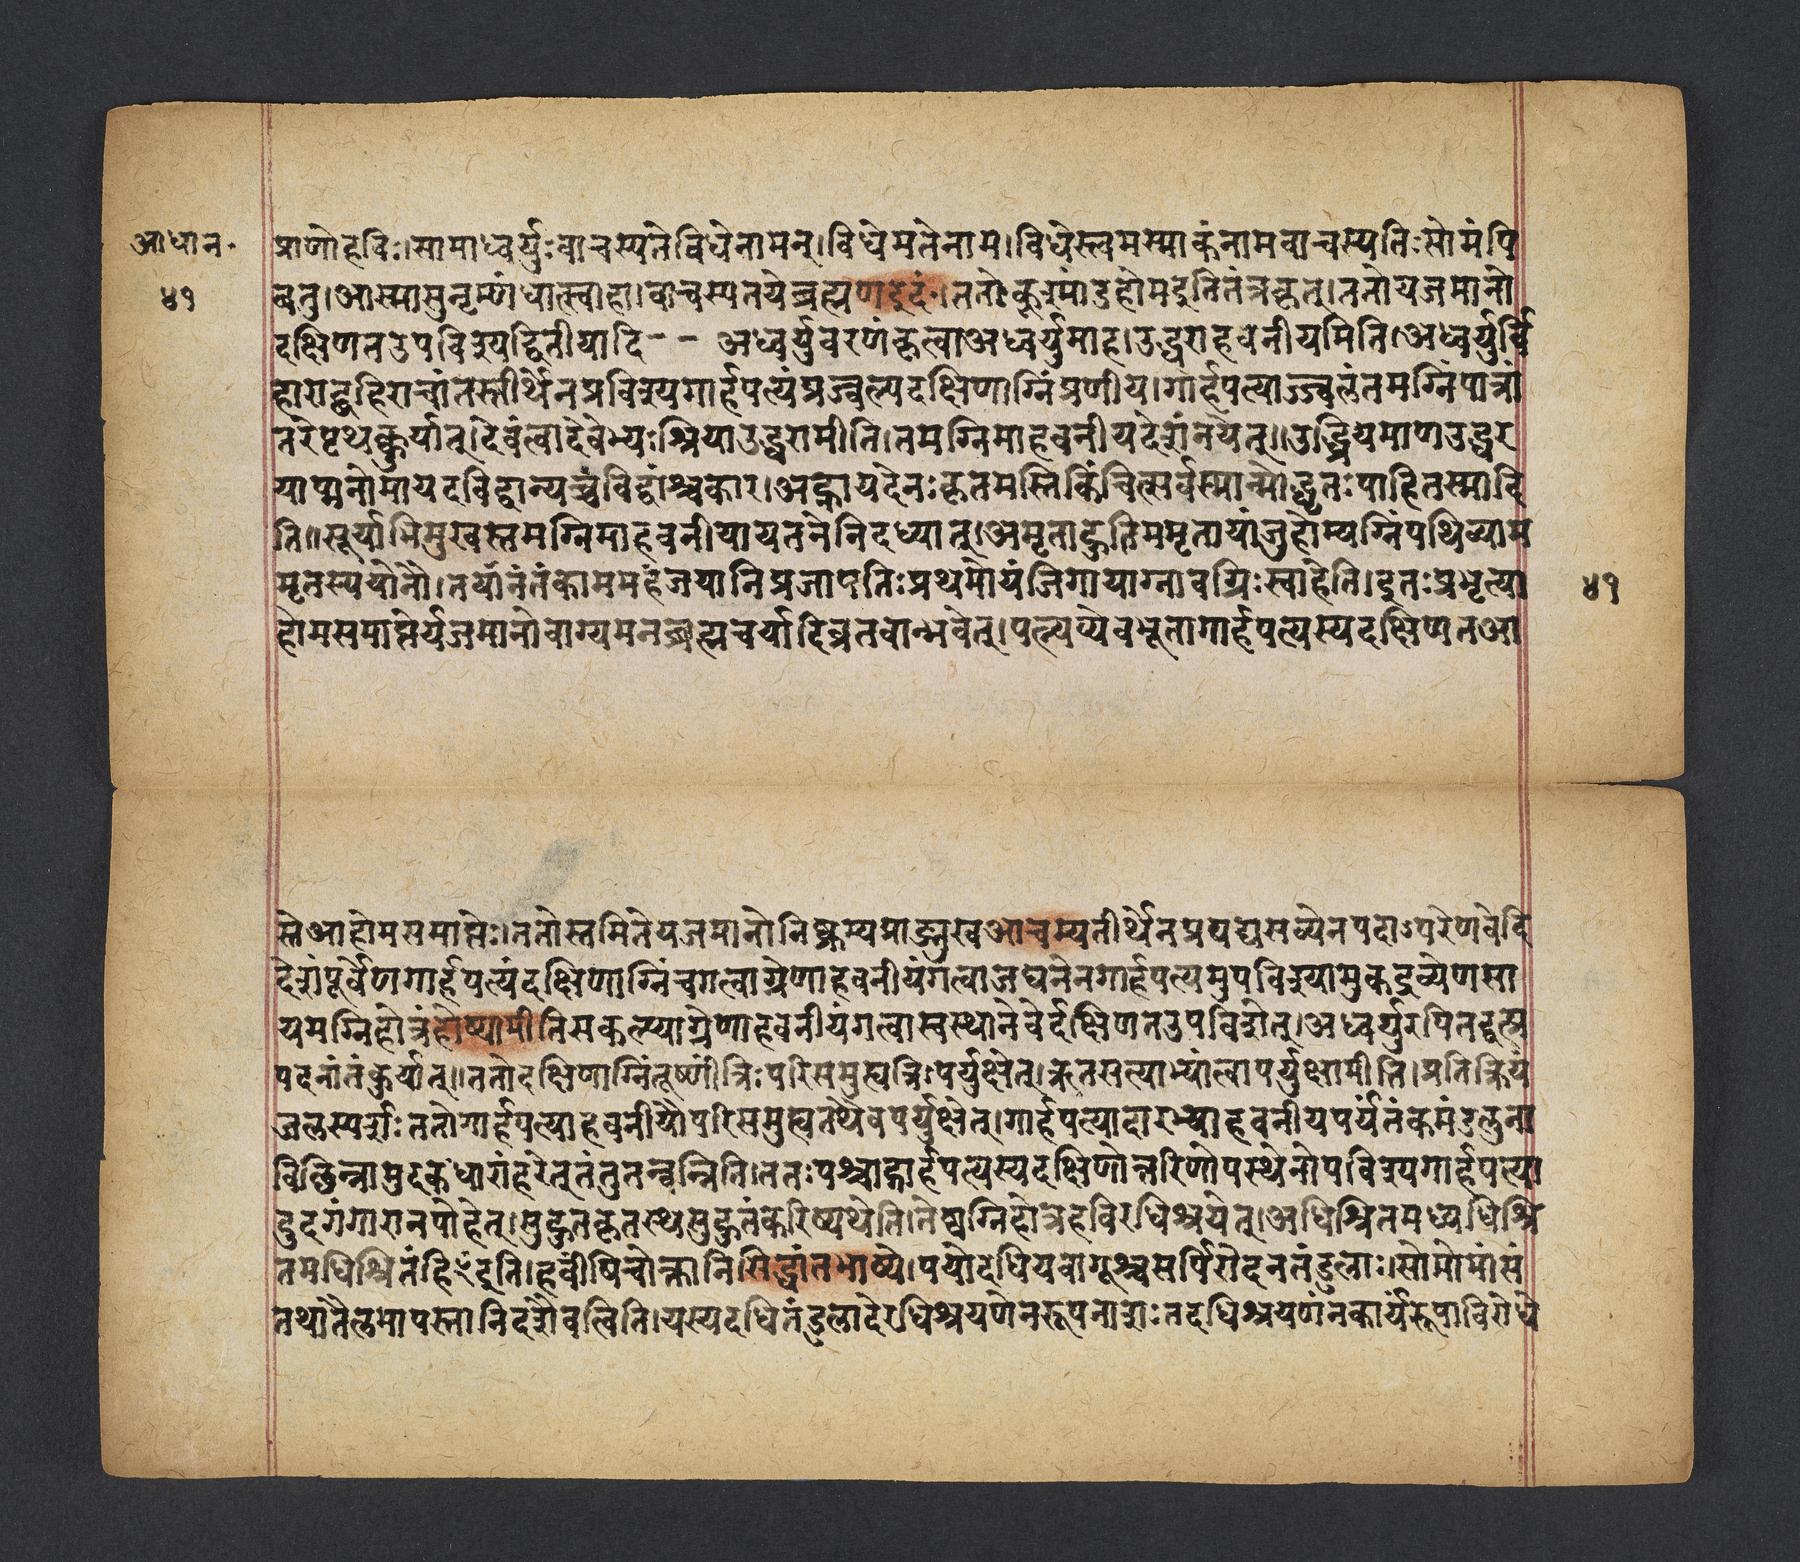 आधान॰
४१
प्राणोहविः।सामाध्वर्युःवाचस्पतेविधेनामन्।विधेमतेनाम।विधेस्त्वमस्माकंनामवाचस्पतिःसोमंपि
बतु।आस्मासुनृम्णंधात्स्वाहा।वाचस्पतयेब्रह्मणइदं।ततोकूश्मांडहोमइतितंत्रकृत्।ततोयजमानो
दक्षिणतउपविश्यद्वितीयादि-- अध्वर्युवरणंकृत्वाअध्वर्युमाह।उद्धराहवनीयमिति।अध्वर्युर्वि
हाराद्बहिराचांतस्तीर्थेनप्रविश्यगार्हपत्यंप्रज्वल्यदक्षिणाग्निंप्रणीय।गार्हपत्याज्ज्वलंतमग्निंपात्रां
तरेपृथक्कुर्यात्।देवंत्वादेवेभ्यःश्रियाउद्धरामीति।तमग्निमाहवनीयदेशंनयेत्॥उद्ध्रियमाणउद्धर
यापानोमायदविद्वान्यच्चविद्वांश्चकार।अह्नायदेनःकृतमस्तिकिंचित्सर्वस्मान्मोद्धृतःपाहितस्मादि
ति॥सूर्याभिमुखस्तमग्निमाहवनीयायतनेनिदध्यात्।अमृताहुतिममृतायांजुहोम्यग्निंपथिव्याम
मृतस्ययोनौ।तयानंतंकाममहंजयानिप्रजापतिःप्रथमोयंजिगायाग्नावग्निःस्वाहेति।इतःप्रभृत्या
४१
होमसमाप्तेर्यजमानोवाग्यमनब्रह्मचर्यादिव्रतवान्भवेत्।पत्न्यप्येवंभूतागार्हपत्यस्यदक्षिणतआ
स्तेआहोमसमाप्तेः।ततोस्तमितेयजमानोनिष्क्रम्यप्राङ्मुखआचम्यतीर्थेनप्रपद्यसव्येनपदाऽपरेणवेदि
देशंपूर्वेणगार्हपत्यंदक्षिणाग्निंचगत्वाग्रेणाहवनीयंगत्वाजघनेनगार्हपत्यमुपविश्यामुकद्रव्येणसा
यमग्निहोत्रंहोष्यामीतिसकल्प्याग्रेणाहवनीयंगत्वास्वस्थानेवेर्दक्षिणतउपविशेत्।अध्वर्युरपितद्वत्प्र
पदनांतंकुर्यात्॥ततोदक्षिणाग्निंतूष्णींत्रिःपरिसमुह्यत्रिःपर्युक्षेत्।ऋतसत्याभ्यांत्वापर्युक्षामीति।प्रतिक्रियं
जलस्पर्शःततोगार्हपत्याहवनीयौपरिसमुह्यतथैवपर्युक्षेत्।गार्हपत्यादारभ्याहवनीयपर्यंतंकमंडलुना
विछिन्नामुदकधारांहरेत्तंतुतन्वन्निति।ततःपश्चाद्गार्हपत्यस्यदक्षिणोत्तरिणोपस्थेनोपविश्यगार्हपत्या
दुदगंगारानपोहेत्।सुहुतकृतस्थसुहुतंकरिष्यथेति।तेष्वग्निहोत्रहविरधिश्रयेत्।अधिश्रितमध्यधिश्रि
तमधिश्रितंहिँइति।हवींषिचोक्तानिसिद्धांतभाष्ये।पयोदधियवागूश्चसर्पिरोदनतंडुलाः।सोमोमांसं
तथातैलमापस्तानिदशैवत्विति।यस्यदधितंडुलादेरधिश्रयणेनरूपनाशःतदधिश्रयणंनकार्यंरूपाविरोधे